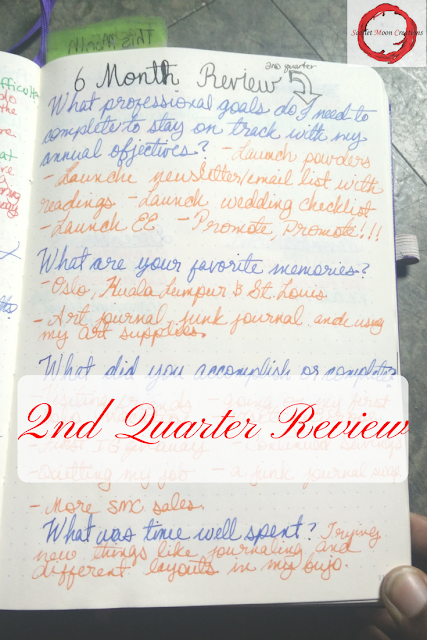 Scarlet Moon Creations
This Month
2nd quarter
6 Month Review
What professional goals do I need to
complete to stay on track with my
annual objectives? - Launch powders
- Launche newsletter/email list with
readings - Launch wedding checklist
- Launch EE - Promote, Promote!!!
What are your favorite memories?
- Oslo, Kuala Lumpur & St. Louis
- Art journal, junk journal, and using
my art supplies.
What did you accomplish or complete?
going on my first
2nd Quarter Review
- Quitting my job - a junk journal
- More SMC sales
What was time well spent? Trying
new things like journaling and
different layouts in my bujo.